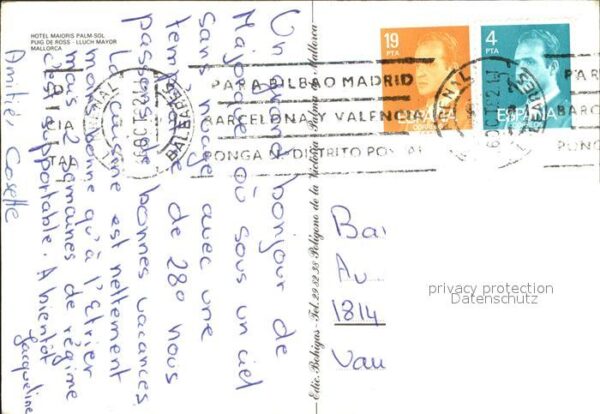 HOTEL MAIORIS PALM-SOL
PUIG DE ROSS - LLUCH MAYOR
MALLORCA
Un grand bonjour de
Majorque où sous un ciel
sans nuage avec une
température de 28° nous
passons de bonnes vacances.
La cuisine est nettement
moins bonne qu'à l'Etrier
mais 2 semaines de régime
c'est supportable. A bientôt
Jacqueline
Amitiés, Cosette
Edic. Bohigas - Tel. 29 82 38 Polígono de la Victoria Palma de Mallorca
19
PTA
ESPAÑA
CORREOS
4
PTA
ESPAÑA
PARA BILBAO MADRID
BARCELONA Y VALENCIA
PONGA Nº DISTRITO POSTAL
BALEARES
PAR
BARC
PONG
Bar
Av
1814
Vau
privacy protection
Datenschutz